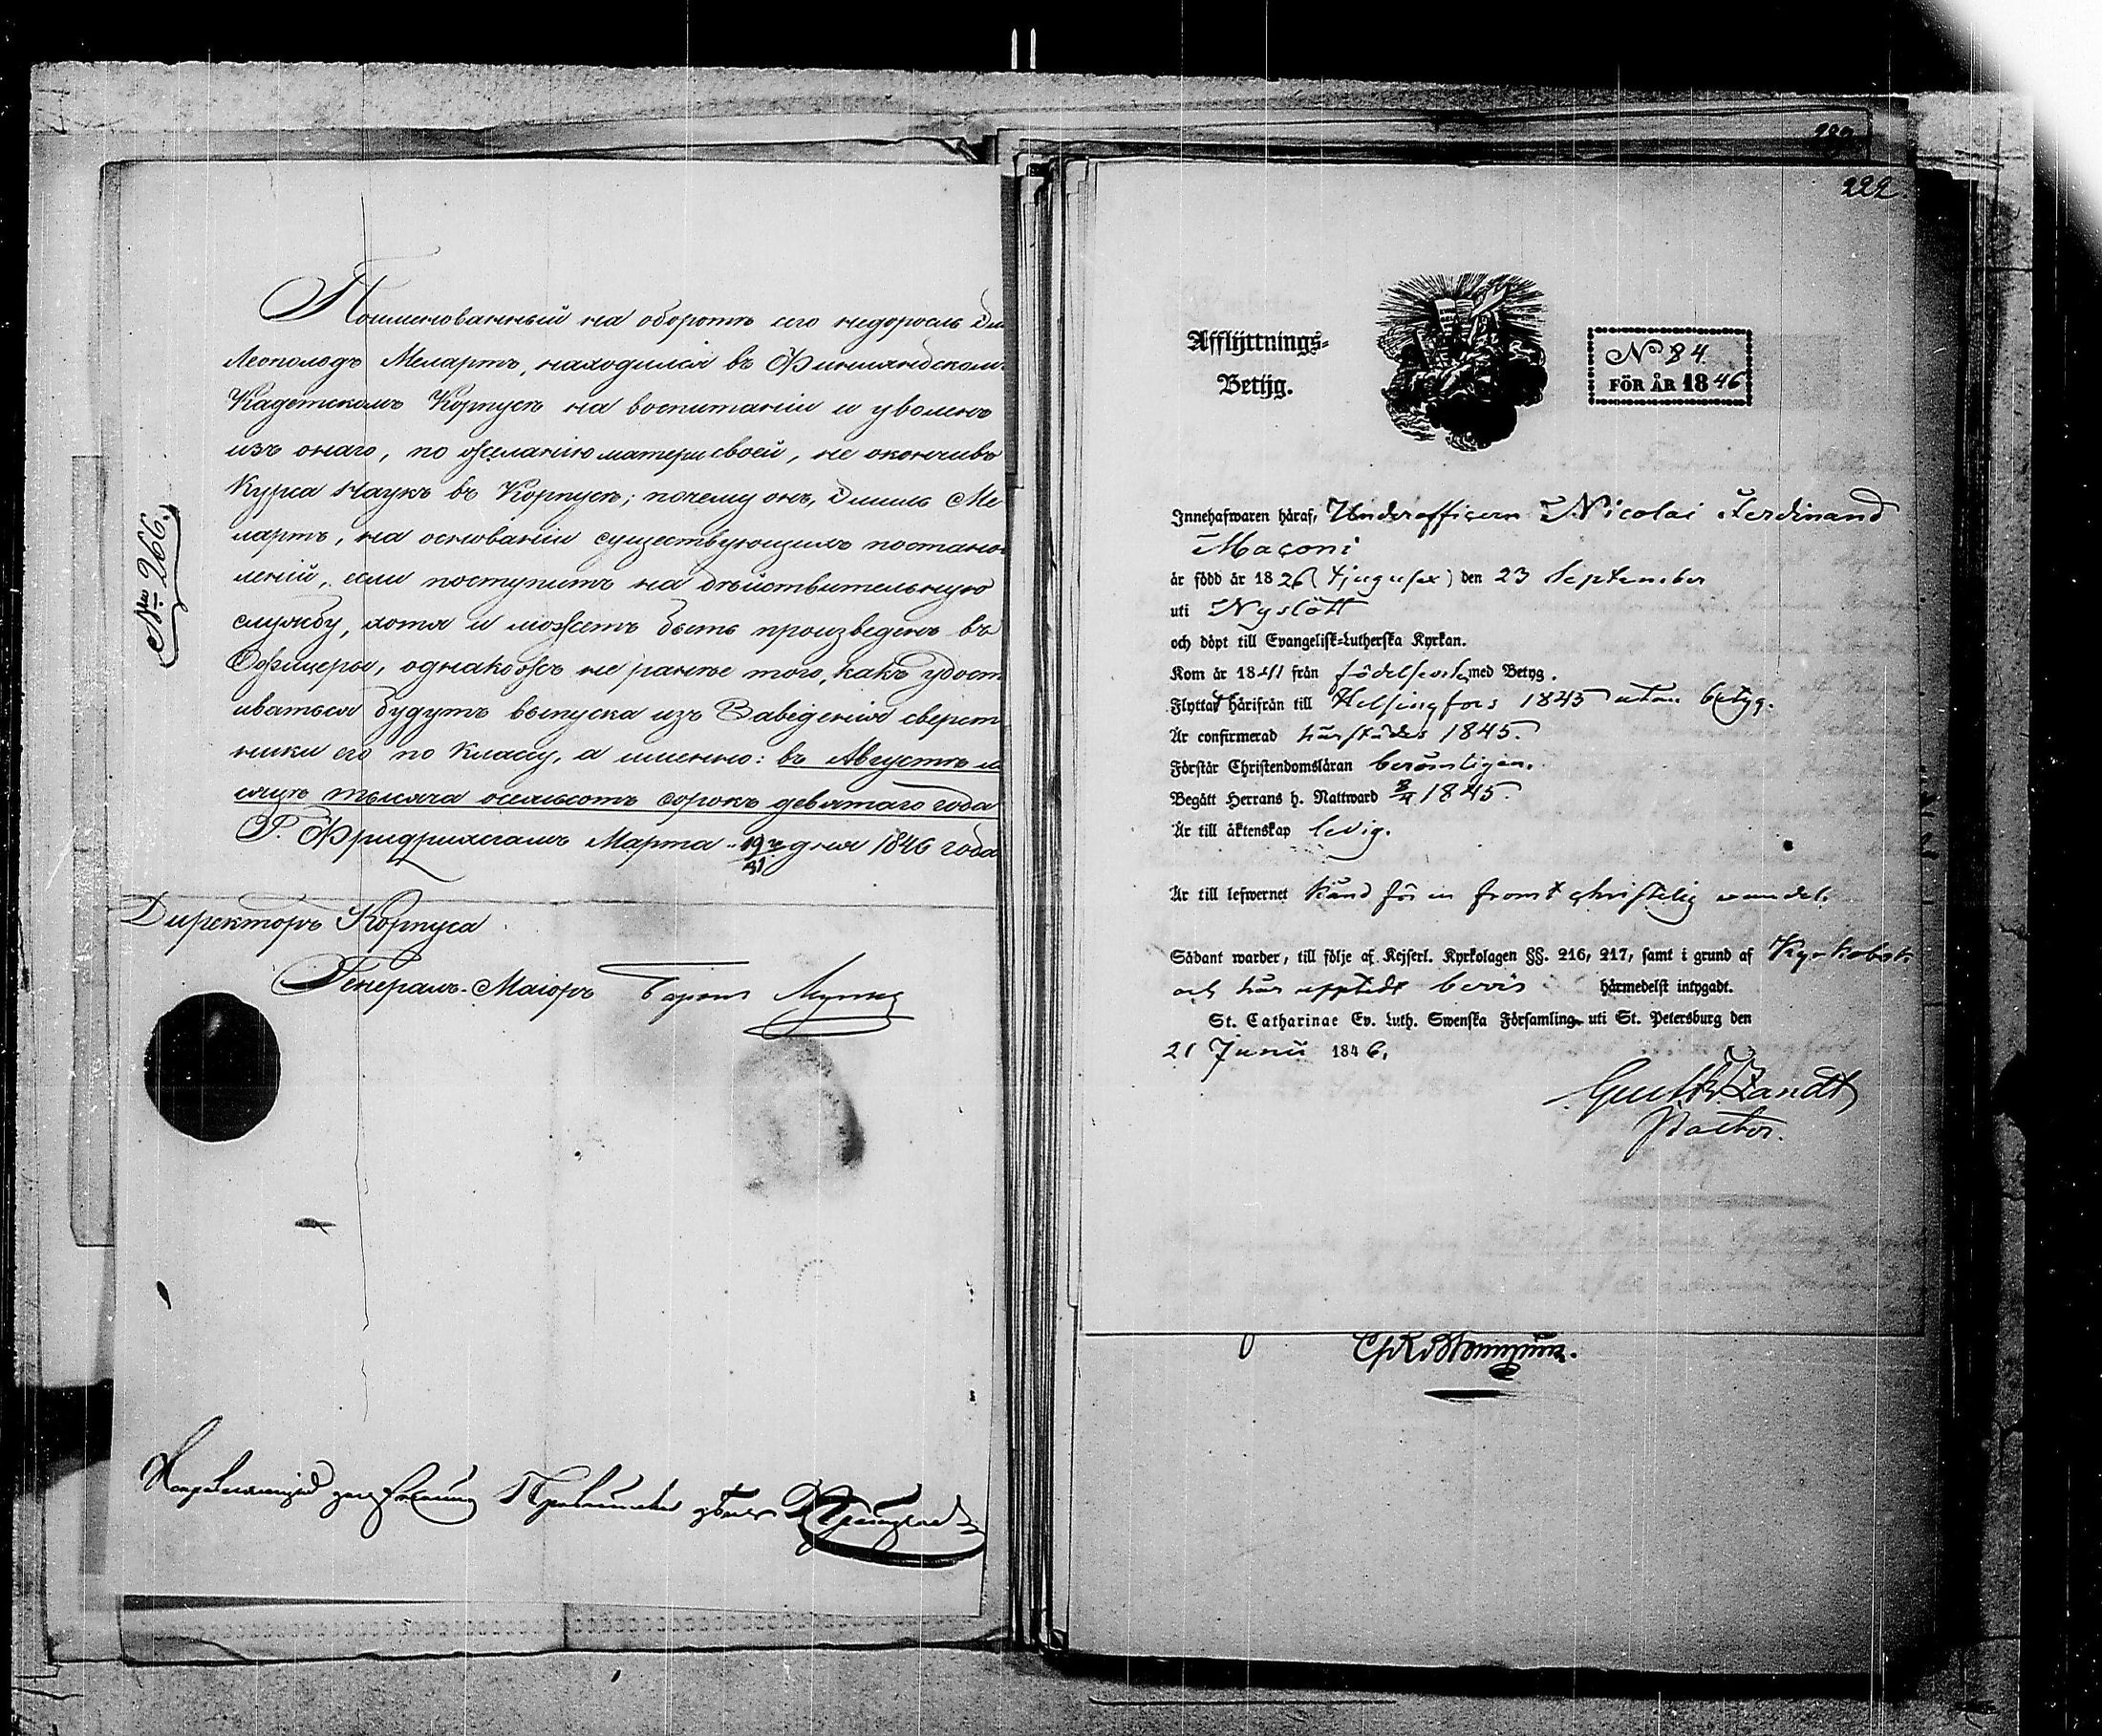 Поименованный на оборотѣ сего недоросль Эм
Леопольдъ Мелартъ, находился въ Финляндскомъ
Кадетскомъ Корпусѣ на воспитаніи и уволенъ
изъ онаго, по желанію матери своей, не окончивъ
Курса Наукъ въ Корпусѣ; почему онъ, Эмиль Ме
лартъ, на основаніи существующихъ постанов
леній, если поступитъ на дѣйствительную
службу, хотя и можетъ быть произведенъ въ
Офицеры, однакожъ не ранѣе того, какъ удост
иваться будутъ выпуска изъ Заведенія сверст
ники его по Классу, а именно: въ Августѣ м
сяцѣ тысяча осемьсотъ сорокъ девятаго года
Г. Фридрихсгамъ Марта 19/31 дня 1846 года
№ 266.
Директоръ Корпуса
Генералъ-Маіоръ Баронъ Мункъ
222
Afflyttnings-
Betyg.
No 84
FÖR ÅR 1846
Innehafwaren häraf, Underofficern Nicolai Ferdinand
Maçoni
är född år 1826 (tjugusex) den 23 September
uti Nyslott
och döpt till Evangelisk-Lutherska Kyrkan.
Kom år 1841 från födelseort med Betyg.
Flyttat härifrån till Helsingfors 1845 utan betyg.
Är confirmerad härstädes 1845.
Förstår Christendomsläran berömligen.
Begått Herrans h. Nattward 1845.
Är till äktenskap ledig.
Är till lefwernet känd för en from & christelig wandel.
Sådant warder, till följe af Kejserl. Kyrkolagen §§. 216, 217, samt i grund af Kyrkobok
och här uppvist bevis härmedelst intygadt.
St. Catharinae Ev. Luth. Swenska Församling uti St. Petersburg den
21 Junii 1846.
Gust. Fr. Zandt
Pastor.